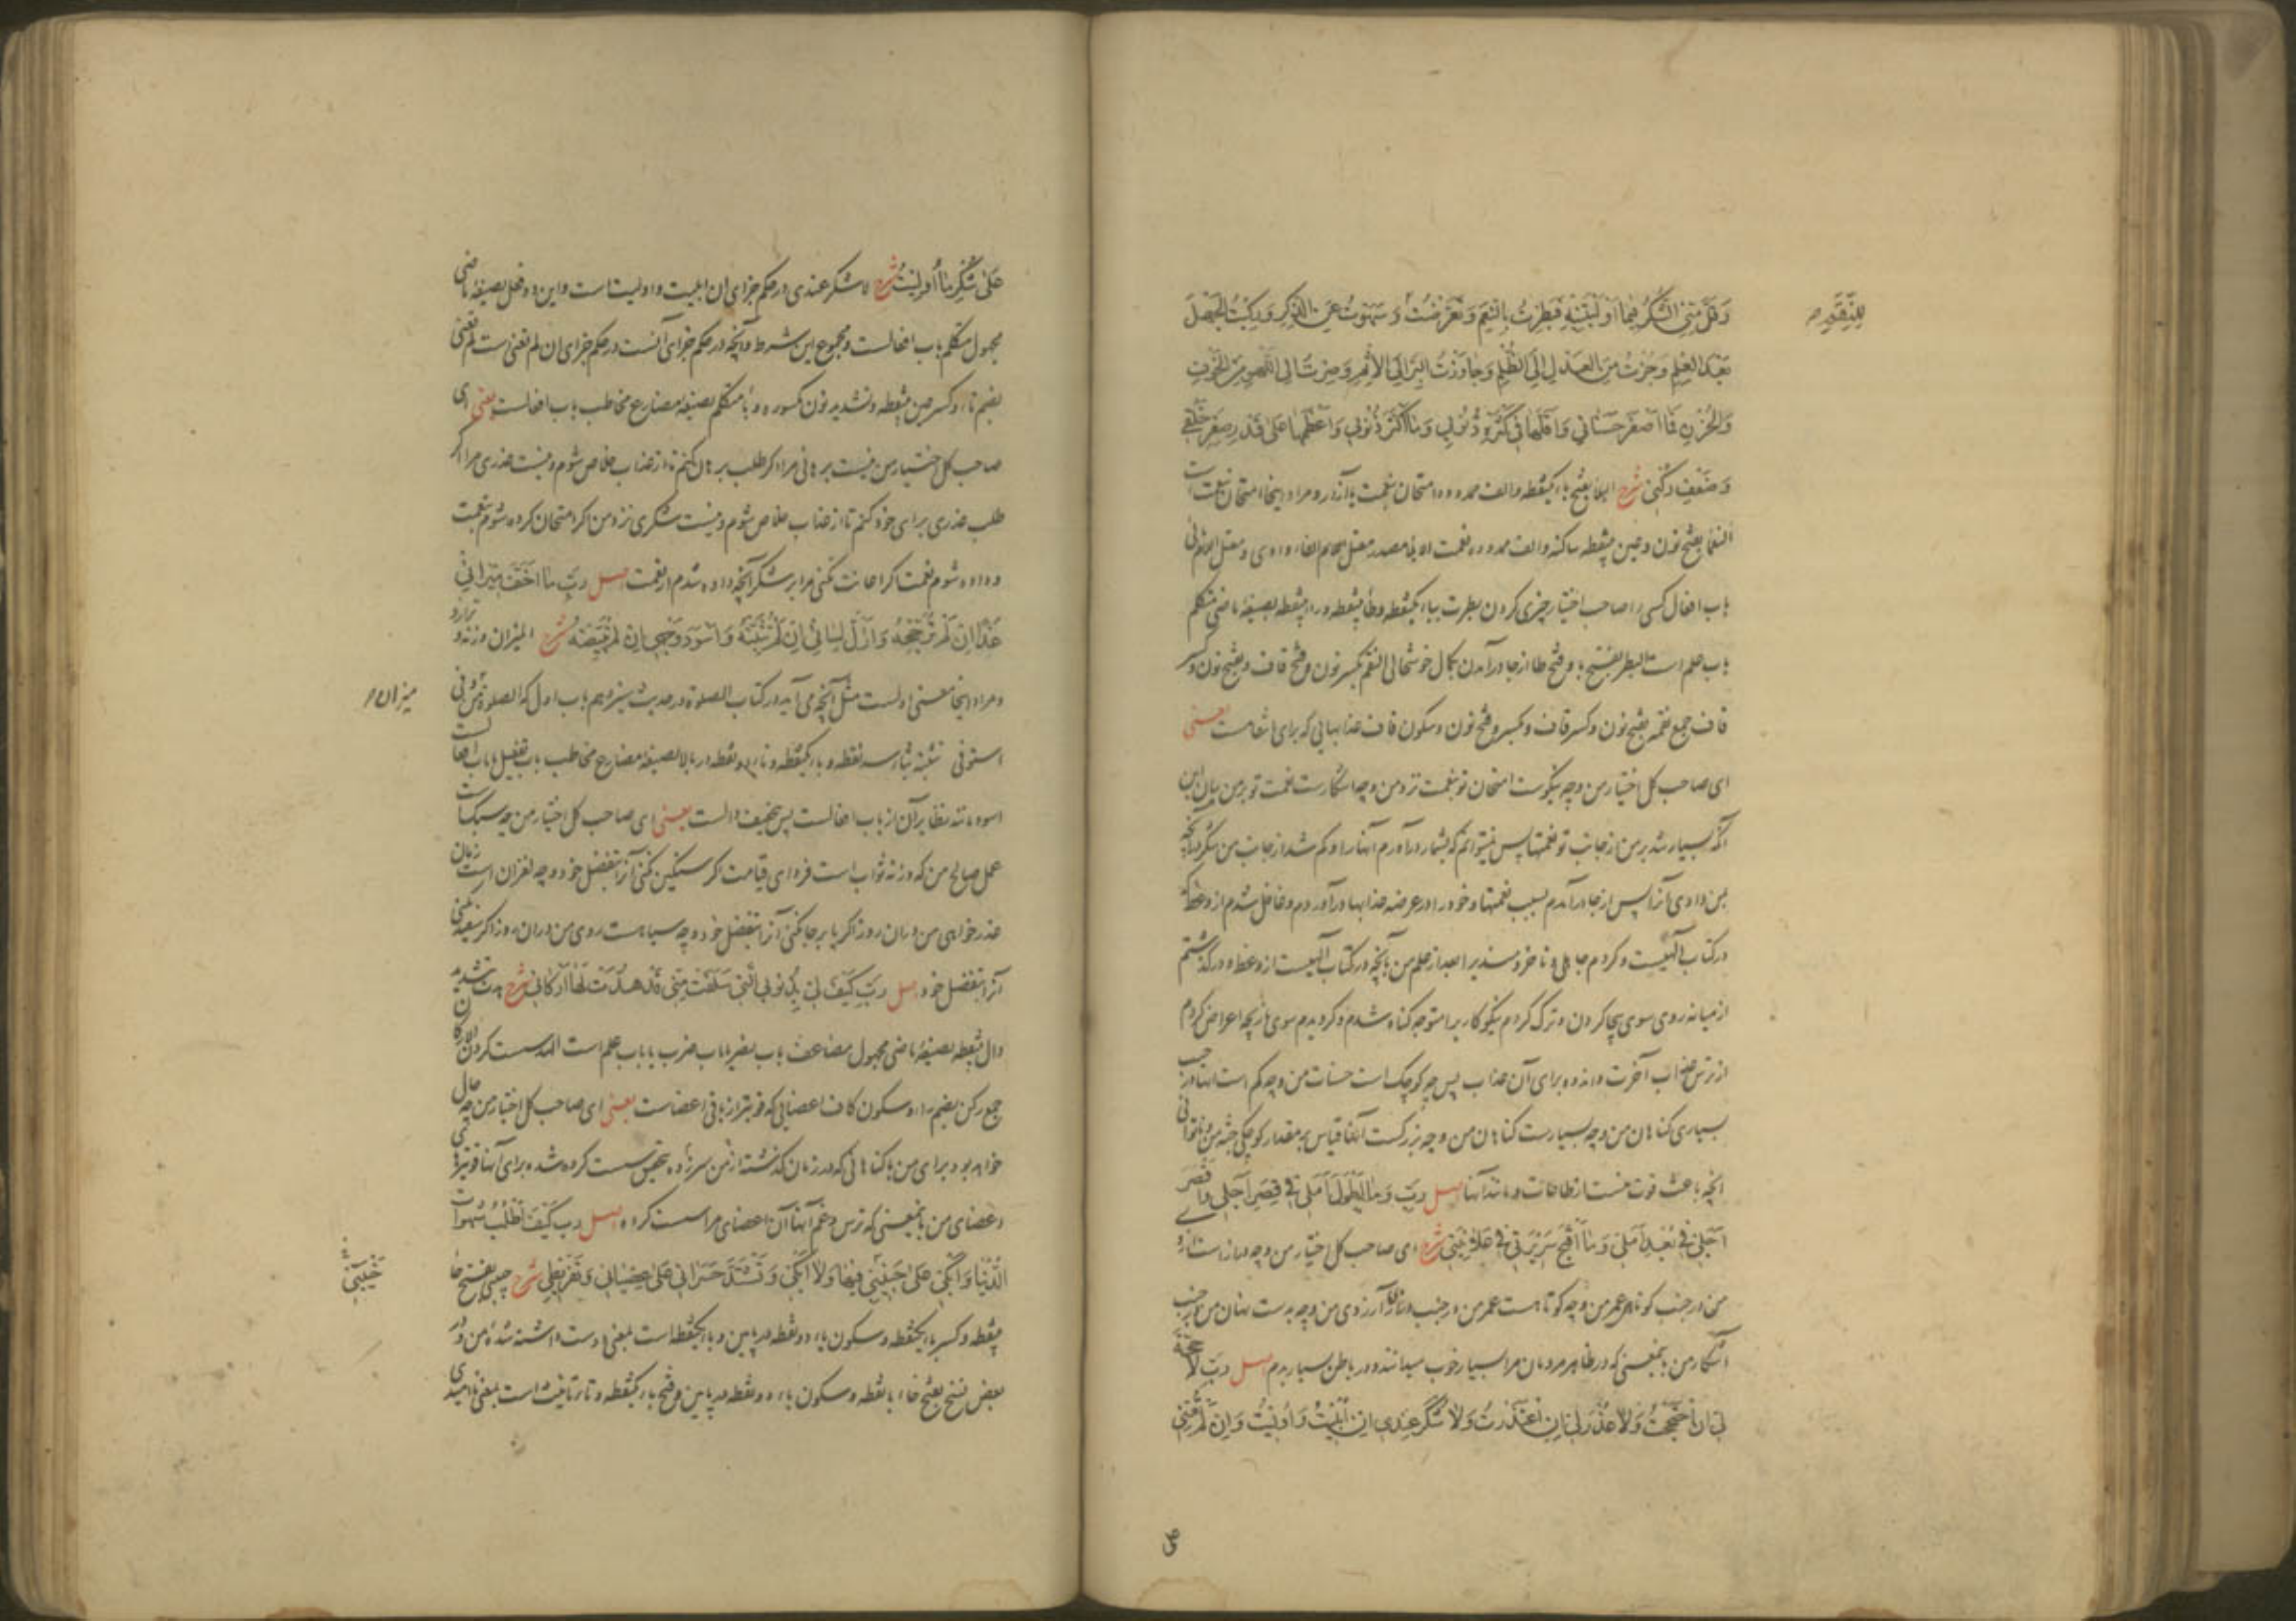 وَقَلَّ مِنِّی الشُّکْرُ فِیمَا أَوْلَیْتَنِیهِ فَبَطِرْتُ بِالنِّعَمِ وَتَعَرَّضْتُ وَسَهَوْتُ عَنِ الذِّکْرِ وَرَکِبْتُ الْجَهْلَ
لِلنِّقَمِ
بَعْدَ الْعِلْمِ وَجُزْتُ مِنَ الْعَدْلِ إِلَی الظُّلْمِ وَجَاوَزْتُ الْبِرَّ إِلَی الْإِثْمِ وَصِرْتُ إِلَی اللَّهْوِ مِنَ الْخَوْفِ
وَالْحُزْنِ فَمَا أَصْغَرَ حَسَنَاتِی وَأَقَلَّهَا فِی کَثْرَةِ ذُنُوبِی وَمَا أَکْثَرَ ذُنُوبِی وَأَعْظَمَهَا عَلَی قَدْرِ صِغَرِ خَلْقِی
وَضَعْفِ رُکْنِی شرح البلا بفتح باء یکنقطه والف ممدوده امتحان بنعمت یا آزار ومراد اینجا امتحان بنعمت است
النعما بفتح نون وعین بینقطه ساکنه والف ممدوده نعمت
باب افعال کسی را صاحب اختیار چیزی کردن بطرت بباء یکنقطه وطاء بینقطه وراء بینقطه بصیغهٔ ماضی متکلم
باب علم است البطر بفتح با وفتح طا از جا درآمدن بکمال خوشحالی النقم بکسر نون وفتح قاف وبفتح نون وکسر
قاف جمع نقمه بفتح نون وکسر قاف وبکسر وفتح نون وسکون قاف عذابهایی که برای انتقامست یعنی
ای صاحب کل اختیار من وچه نیکوست امتحان تو بنعمت نزد من وچه آشکارست نعمت تو بر من بیان این
آنکه بسیار شد بر من از جانب تو نعمتها پس نمیتوانم که بشمار درآورم آنها را وکم شد از جانب من شکر در آنچه
بمن دادی آنرا پس از جا درآمدم بسبب نعمتها وخود را در عرضهٔ عذابها درآوردم وغافل شدم از وعظ که
در کتاب الهیست وکردم جاهلی وناخردمندی را بعد از علم من بآنچه در کتاب الهیست از وعظ ودرگذشتم
از میانه روی سوی بیجا کردن وترک کردم نیکوکاری را متوجه گناه شدم وگردیدم سوی بازیچه اعراض کردم
از ترس عذاب آخرت واندوه برای آن عذاب پس چه کوچک است حسنات من وچه کم است آنها در جنب
بسیاری گناهان من وچه بسیارست گناهان من وچه بزرگست آنها قیاس بمقدار کوچکی جثهٔ من وناتوانی
آنچه باعث قوت منست از طاعات ومانند آنها اصل رَبِّ وَمَا أَطْوَلَ أَمَلِی فِی قِصَرِ أَجَلِی وَأَقْصَرَ
أَجَلِی فِی بُعْدِ أَمَلِی وَمَا أَقْبَحَ سَرِیرَتِی فِی عَلَانِیَتِی شرح ای صاحب کل اختیار من وچه درازست آرزوی
من در جنب کوتاهی عمر من وچه کوتاهست عمر من در جنب درازی آرزوی من وچه بدست نهان من در جنب
آشکار من بمعنی که در ظاهر مردمان مرا بسیار خوب میدانند ودر باطن بسیار بدم اصل رَبِّ لَا حُجَّةَ
لِی إِنِ احْتَجَجْتُ وَلَا عُذْرَ لِی إِنِ اعْتَذَرْتُ وَلَا شُکْرَ عِنْدِی إِنِ ابْتُلِیتُ وَأُولِیتُ وَإِنْ لَمْ تُعِنِّی
عَلَی شُکْرِ مَا أُولِیتُ شرح لا شکر عندی در حکم جزای ان ابلیت واولیتست واین دو فعل بصیغهٔ ماضی
مجهول متکلم باب افعالست ومجموع این شرط وآنچه در حکم جزای آنست در حکم جزای ان لم تعنی است لم تعنی
بضم تا وکسر عین بینقطه وتشدید نون مکسوره ویا متکلم بصیغهٔ مضارع مخاطب باب افعالست یعنی ای
صاحب کل اختیار من نیست برهانی مرا اگر طلب برهان کنم تا از عذاب خلاص شوم ونیست عذری مرا اگر
طلب عذری برای خود کنم تا از عذاب خلاص شوم ونیست شکری نزد من اگر امتحان کرده شوم بنعمت
وداده شوم نعمت اگر اعانت نکنی مرا بر شکر آنچه داده شدم از نعمت اصل رَبِّ مَا أَخَفَّ مِیزَانِی
غَدًا إِنْ لَمْ تُرَجِّحْهُ وَأَزَلَّ لِسَانِی إِنْ لَمْ تُثَبِّتْهُ وَأَسْوَدَ وَجْهِی إِنْ لَمْ تُبَیِّضْهُ شرح المیزان وزنه وترازو
ومراد اینجا معنی اولست مثل آنچه می آید در کتاب الصلوة در حدیث سیزدهم باب اول که الصلوة میزان من وفی
میزان
استوفی تثبته بثاء سه نقطه وباء یکنقطه وتاء دو نقطه در بالا بصیغهٔ مضارع مخاطب باب تفعیل یا باب افعالست
اسود مانند نظایر آن از باب افعالست پس بتخفیف دالست یعنی ای صاحب کل اختیار من چه سبکست
عمل صالح من که وزنهٔ ثواب است فردای قیامت گر سنگین نکنی آنرا بتفضل خود وچه لغزان است زبان
عذرخواهی من در آن روز اگر پابرجا نکنی آنرا بتفضل خود وچه سیاهست روی من در آن روز اگر سفید نکنی
آنرا بتفضل خود اصل رَبِّ کَیْفَ لِی بِذُنُوبِیَ الَّتِی سَلَفَتْ مِنِّی قَدْ هُدَّتْ لَهَا أَرْکَانِی شرح هدت بتشدید
دال بینقطه بصیغهٔ ماضی مجهول مضاعف باب نصر یا باب ضرب یا باب علم است الهد سست کردن الارکان
جمع رکن بضم راء وسکون کاف اعضایی که قویتر از باقی اعضاست یعنی ای صاحب کل اختیار من چه حال
خواهد بود برای من با گناهانی که در زمان گذشته از من سرزده بتحقیق سست کرده شده برای آنها قویترهای
اعضای من بمعنی که ترس وغم آنها آن اعضای مرا سست کرده اصل رب کَیْفَ أَطْلُبُ شَهَوَاتِ
الدُّنْیَا وَأَبْکِی عَلَی حَبِیبِی فِیهَا وَلَا أَبْکِی وَتَشْتَدُّ حَسَرَاتِی عَلَی عِصْیَانِی وَتَفْرِیطِی شرح حبیبی بفتح حاء
خَیْبَتِی
بینقطه وکسر باء یکنقطه وسکون یاء دو نقطه در پایین وباء یکنقطه است بمعنی دوست داشته شدهٔ من ودر
بعض نسخ بفتح خاء با نقطه وسکون یاء دو نقطه در پایین وفتح باء یکنقطه وتاء تأنیث است بمعنی ناامیدی